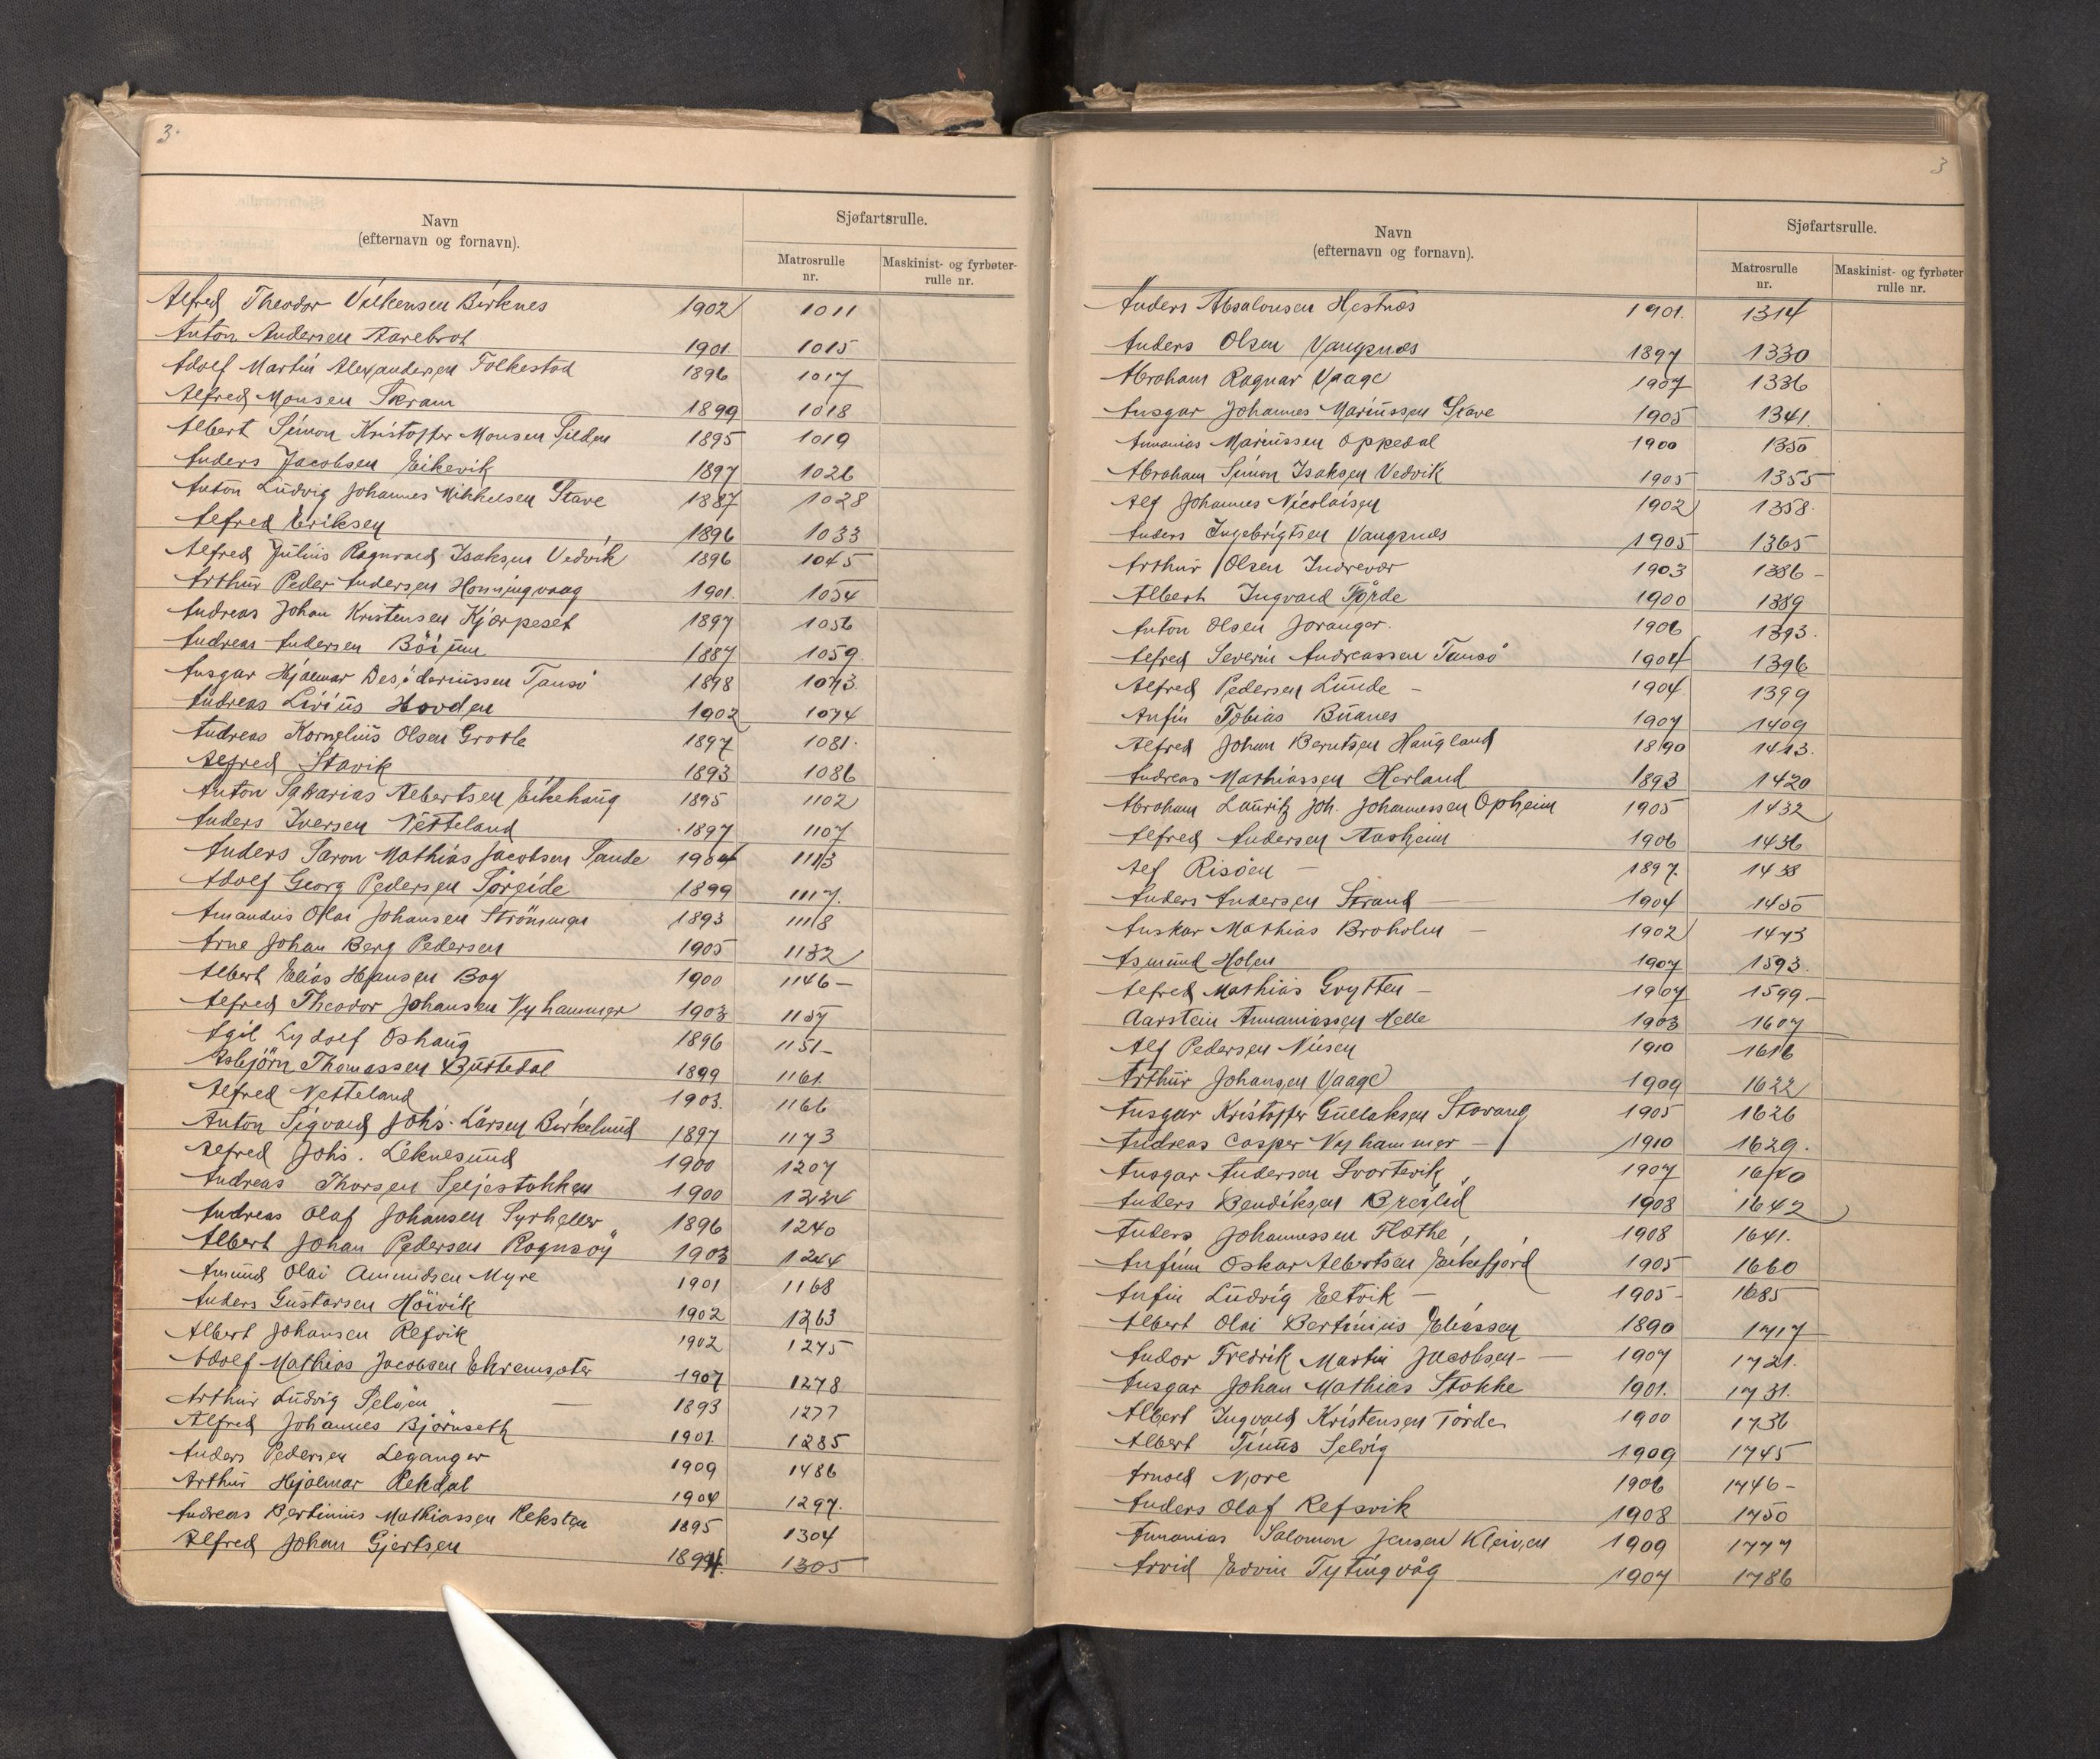 3.
Navn
(efternavn og fornavn).
Sjøfartsrulle.
Matrosrulle
nr.
Maskinist- og fyrbøter-
rulle nr.
Alfred Theodor Vilkensen Birknes 1902 1011
Anton Andersen Aarebrot 1901. 1015
Adolf Martin Alexandersen Folkestad 1896 1017
Alfred Monsen Skram 1899 1018
Albert Simon Kristoffer Monsen Silden 1895 1019
Anders Jacobsen Eikevik 1897 1026
Anton Ludvig Johannes Mikkelsen Stave 1887 1028
Alfred Eriksen 1896 1033
Alfred Julius Ragnvald Isaksen Vedvik 1896 1045
Arthur Peder Andersen Honningvaag 1901. 1054
Andreas Johan Kristensen Kjørpeset 1897 1056
Andreas Andersen Böium 1887 1059.
Ansgar Hjalmar Desideriussen Tansö 1898 1073.
Andreas Livius Hovden 1902 1074
Andreas Kornelius Olsen Grotle 1897 1081.
Alfred Stavik 1893 1086
Anton Sakarias Albertsen Eikehaug 1895 1102
Anders Iversen Netteland 1897 1107
Anders Saron Mathias Jacobsen Sande 1904 1113
Adolf Georg Pedersen Töreide 1899 1117.
Amandus Olai Johansen Strömmen 1893 1118
Arne Johan Berg Pedersen 1905 1132
Albert Elias Hansen Bog 1900 1146 –
Alfred Theodor Johansen Nyhammer 1903 1157
Agil Lydolf Oshaug 1896 1151 –
Asbjörn Thomassen Buttedal 1899 1161.
Alfred Netteland 1903. 1166
Anton Sigvald Johs. Larsen Birkelund 1897 1173
Alfred Johs. Leknesund 1900 1207
Andreas Thorsen Seljestokken 1900 1224
Andreas Olaf Johansen Systheller 1896 1240
Albert Johan Pedersen Rognsöy 1903 1244
Amund Olai Amundsen Myre 1901 1168
Anders Gustavsen Höivik 1902 1263
Albert Johansen Refvik 1902 1275
Adolf Mathias Jacobsen Ehremsæter 1907 1278
Arthur Ludvig Selöen — 1893 1277
Alfred Johannes Björnseth 1901. 1285
Anders Pedersen Leganger 1909 1486
Arthur Hjalmar Rekdal 1904 1297.
Andreas Bertinius Mathiassen Reksten 1895 1304
Alfred Johan Gjertsen 1894. 1305
3
Navn
(efternavn og fornavn).
Sjøfartsrulle.
Matrosrulle
nr.
Maskinist- og fyrbøter
rulle nr.
Anders Absalonsen Hestnes 1901. 1314
Anders Olsen Vangsnes 1897 1330
Abraham Ragnar Vaage 1907 1336
Ansgar Johannes Mariussen Stave 1905 1341.
Annanias Mariussen Oppedal 1900 1350
Abraham Simon Isaksen Vedvik 1905 1355
Alf Johannes Nicolaisen 1902 1358.
Anders Ingebrigtsen Vangsnes 1905 1365
Arthur Olsen Indrevær 1903 1386 –
Albert Ingvald Förde 1900 1389
Anton Olsen Joranger. 1906 1393.
Alfred Severin Andreassen Tansö 1904 1396
Alfred Pedersen Lunde – 1904. 1399
Anfin Tobias Buanes 1907 1409
Alfred Johan Berntsen Haugland 1890 1413.
Andreas Mathiassen Herland 1893 1420
Abraham Lauritz Joh. Johannessen Opheim 1905 1432
Alfred Andersen Aasheim 1906 1436
Alf Risöen – 1897. 1438
Anders Andersen Strand — 1904 1450
Anskar Mathias Broholm – 1902 1473
Asmund Holen 1907 1593.
Alfred Mathias Grytten – 1907 1599 –
Aarstein Annaniassen Helle 1903 1607
Alf Pedersen Nilsen 1910 1616
Arthur Johansen Vaage 1909 1622
Ansgar Kristoffer Gullaksen Stavang 1905 1626
Andreas Casper Nyhammer – 1910 1629.
Ansgar Andersen Svortevik 1907 1640
Anders Bendiksen Breilid 1908 1642
Anders Johannessen Flothe 1908 1641.
Anfinn Oskar Albertsen Eikefjord 1905 1660
Anfin Ludvig Eltvik – 1905 1685
Albert Olai Bertinius Eliassen 1890 1717
Andor Fredrik Martin Jacobsen — 1907 1721.
Ansgar Johan Mathias Stokke 1901. 1731.
Albert Ingvald Kristensen Förde 1900 1736
Albert Tinus Selvig 1909 1745
Arnold Nore 1906 1746 –
Anders Olaf Refsvik 1908 1750
Annanias Salomon Jensen Kleiven 1909 1777
Arvid Edvin Tytingvåg 1907 1786